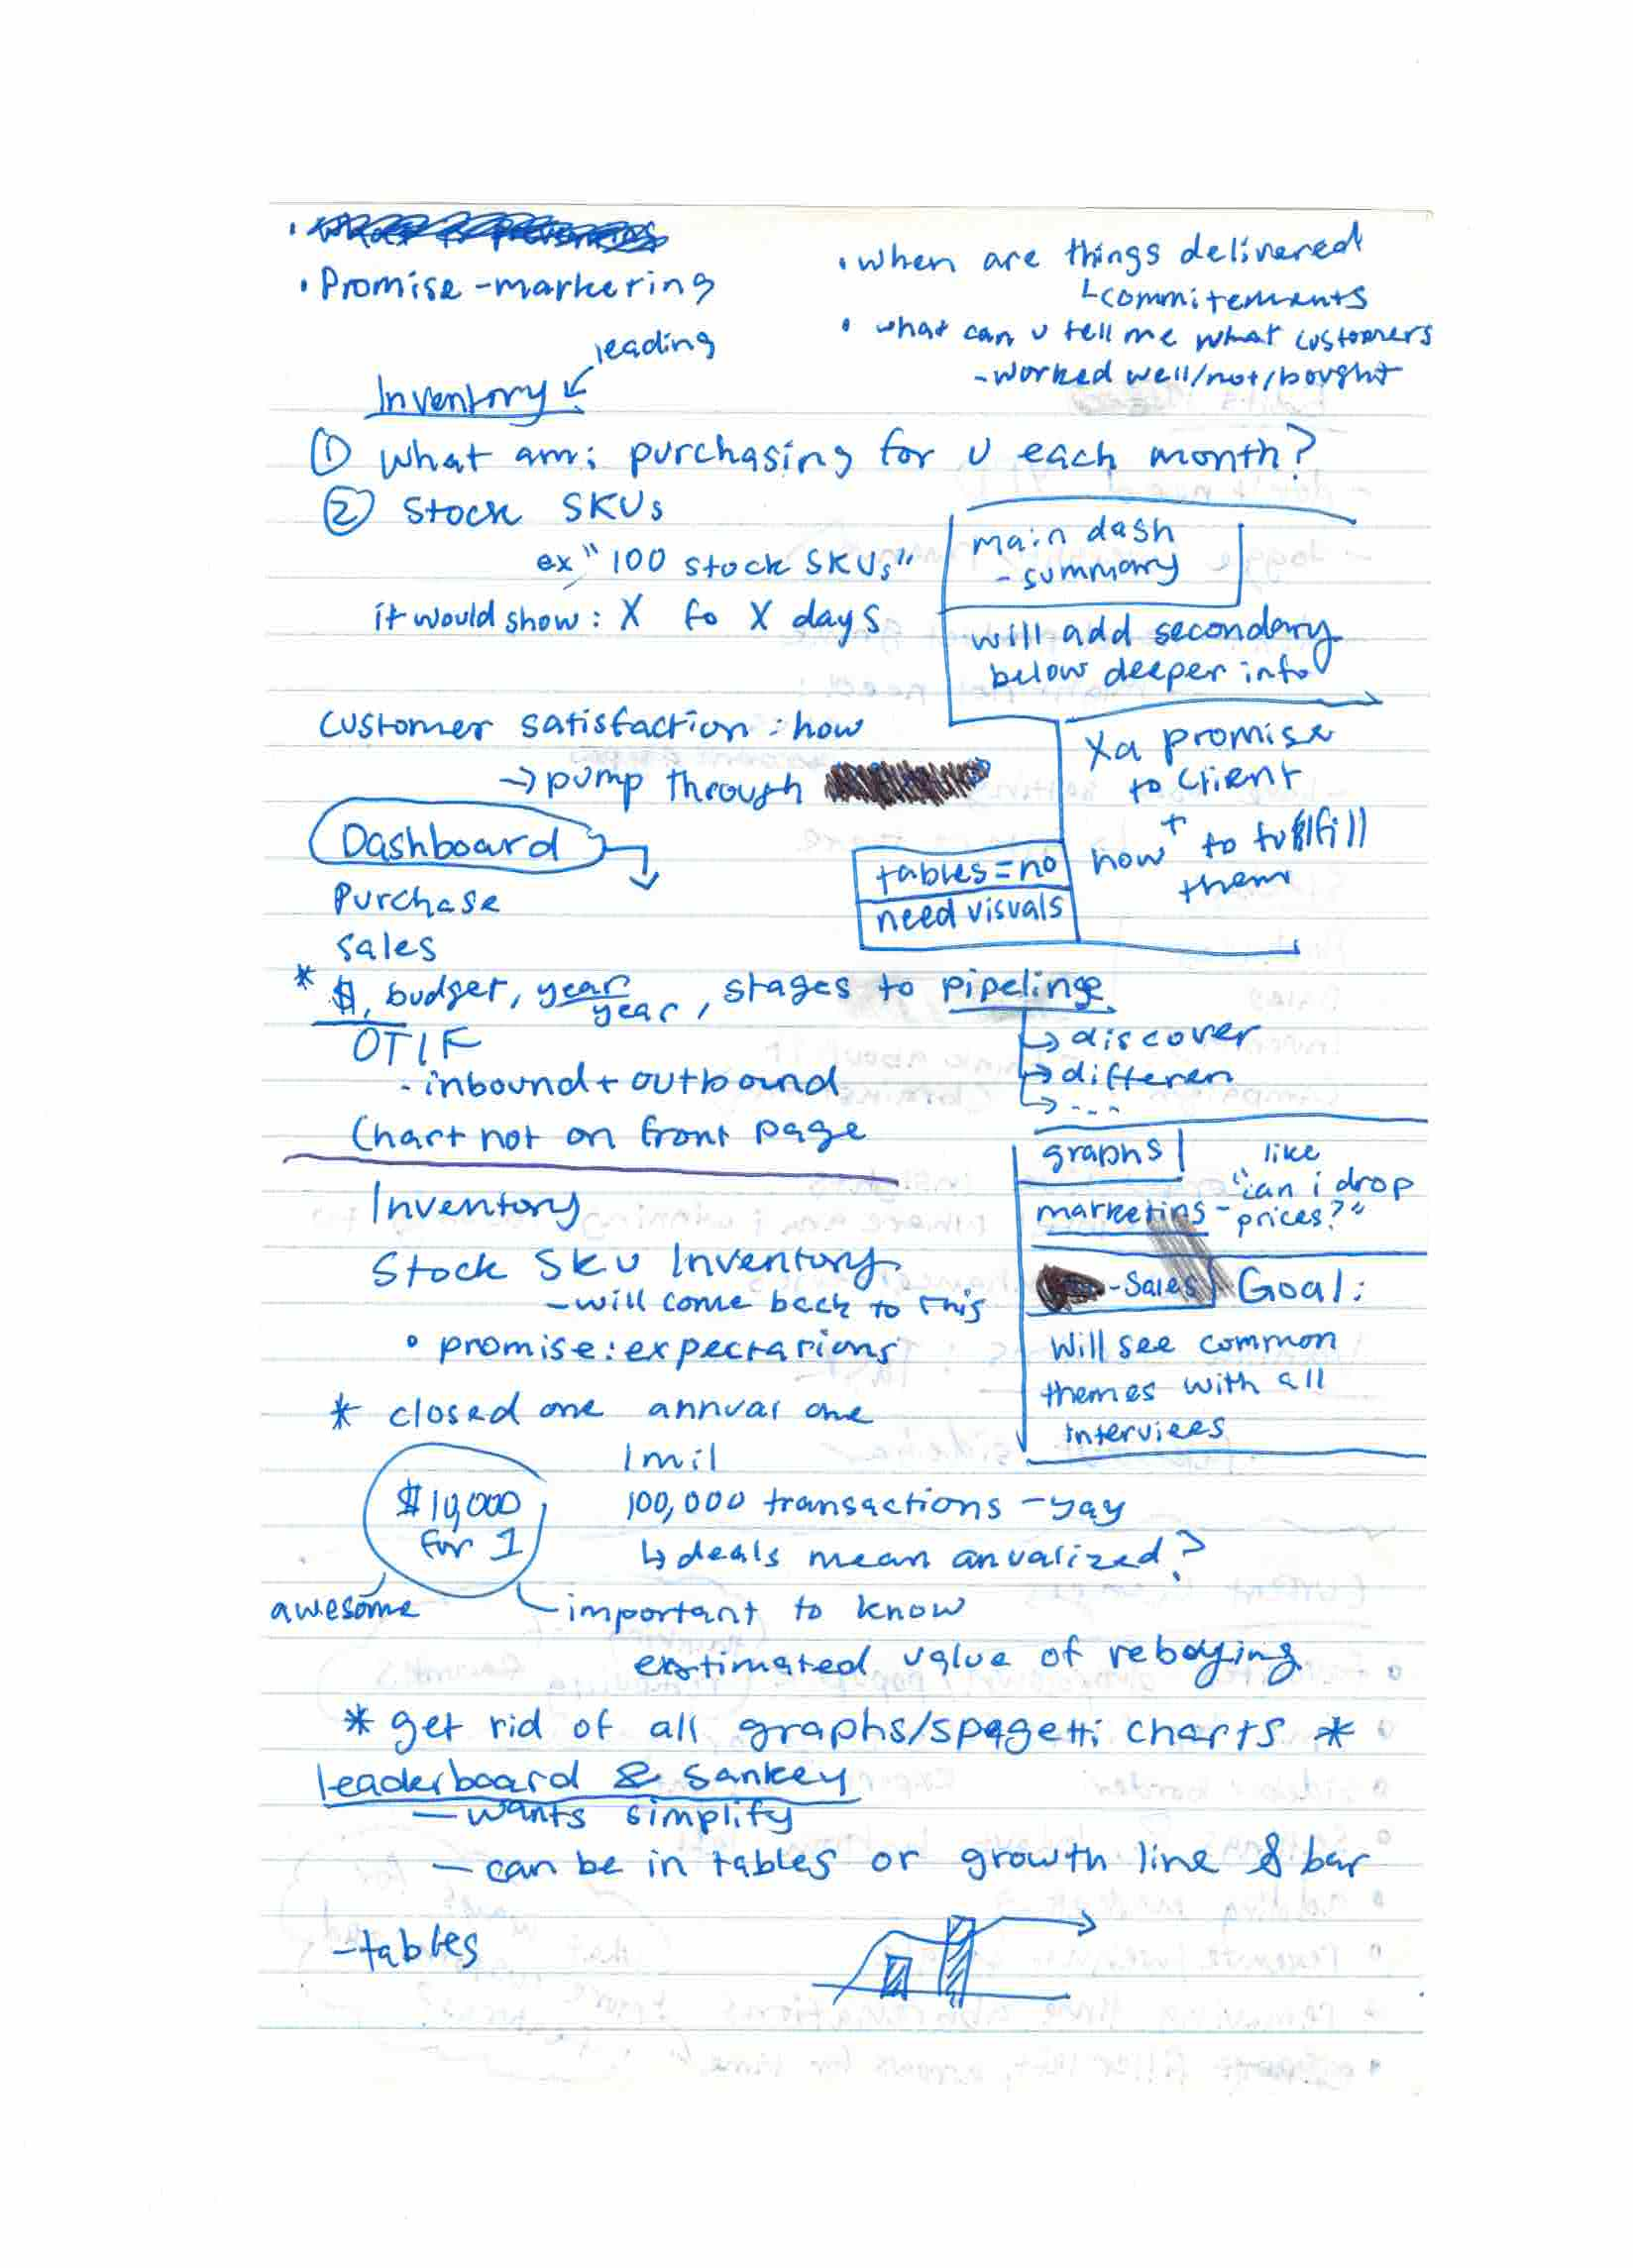 • Promise - marketing
• when are things delivered
└ commitements
• what can u tell me what customers
- worked well/not/bought
leading
Inventory ↙
① what am i purchasing for U each month?
② Stock SKUs
ex "100 stock SKUs"
it would show: X fo X days
main dash
- summary
will add secondary
below deeper info
customer satisfaction : how
→ pump through
Xa promise
to client
+
how to fulfill
them
Dashboard
tables = no
need visuals
Purchase
Sales
* $, budget, year year, stages to pipeline
↳ discover
↳ differen
↳ ...
OTIF
- inbound + outbound
Chart not on front page
graphs
like
marketing - "can i drop
prices?"
Inventory
Stock SKU Inventory
- will come back to this
• promise: expectations
- Sales
Goal:
Will see common
themes with all
interviees
* closed one annual one
1 mil
for 1
100,000 transactions - yay
↳ deals mean anualized?
awesome
important to know
estimated value of rebuying
* get rid of all graphs/spagetti charts *
leaderboard & sankey
- wants simplify
- can be in tables or growth line & bar
- tables